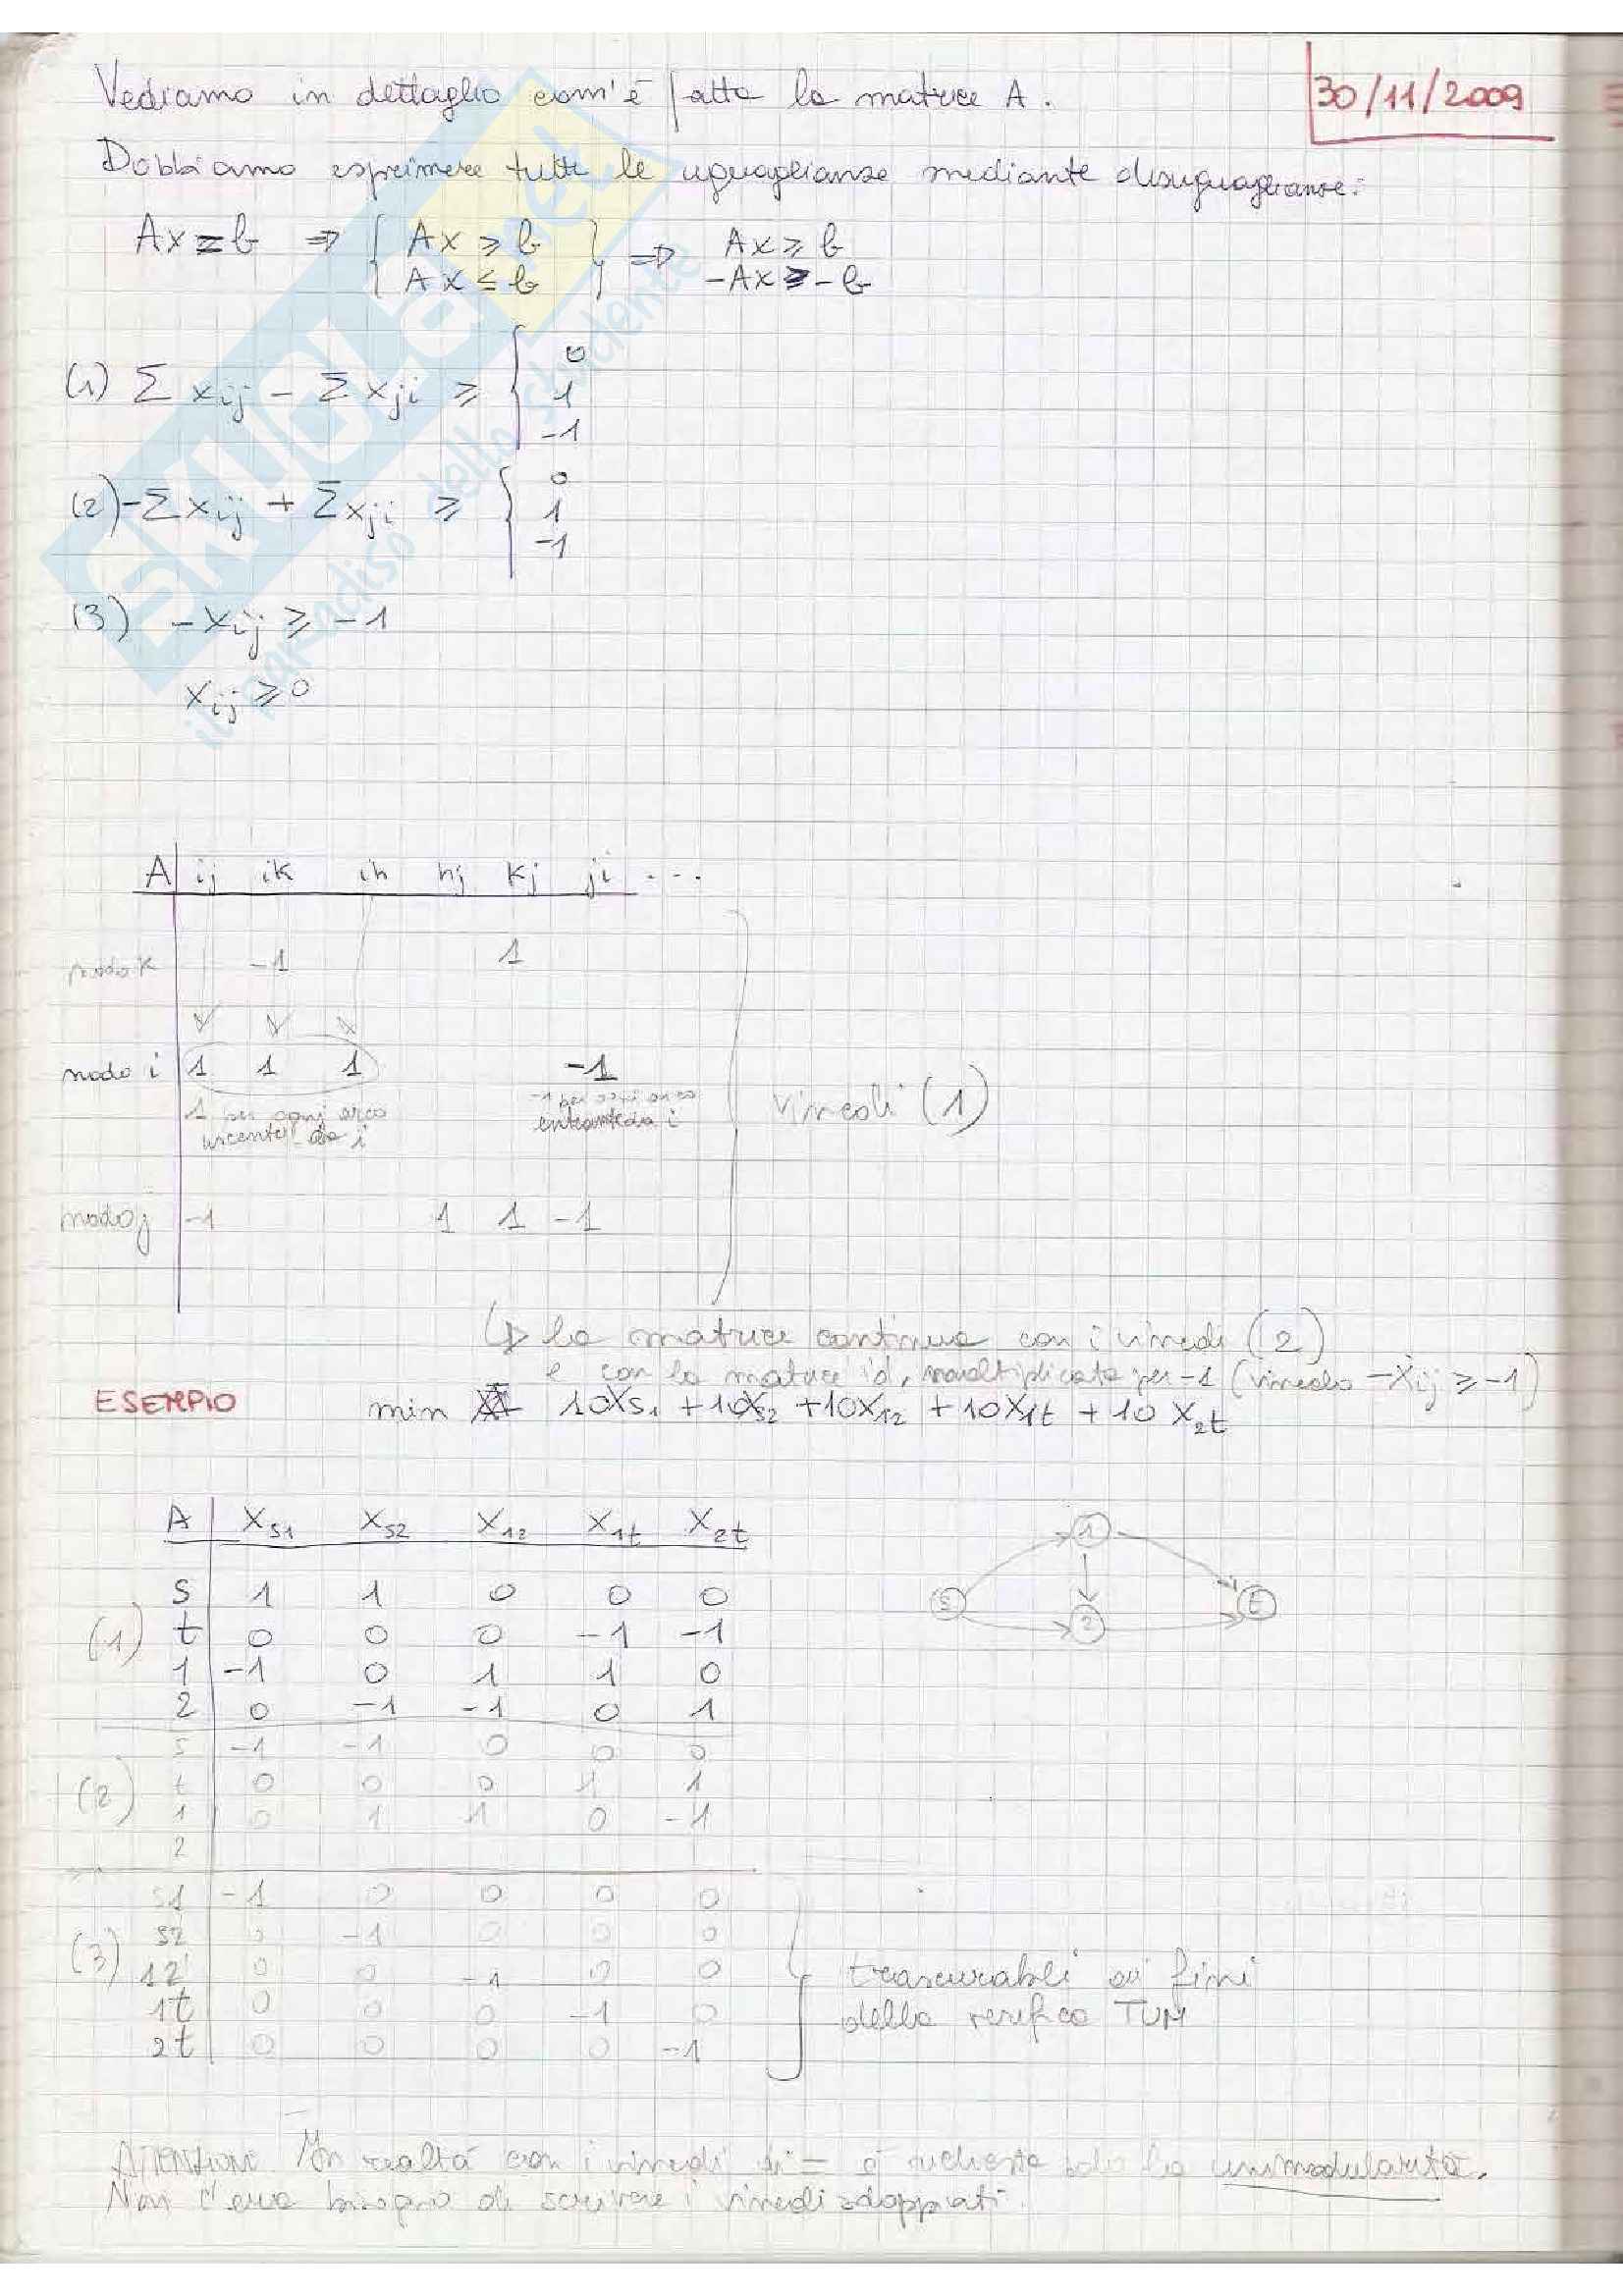 30/11/2009
Vediamo in dettaglio com'è fatta la matrice A.
Dobbiamo esprimere tutte le uguaglianze mediante disuguaglianze:
Ax = b ⇒ { Ax ≥ b } ⇒ Ax ≥ b
Ax ≤ b -Ax ≥ -b
(1) Σ xij - Σ xji ≥ { 0
1
-1
(2) -Σ xij + Σ xji ≥ { 0
1
-1
(3) -xij ≥ -1
xij ≥ 0
SKUOLA.net
il paradiso dello studente
A ij ik ih hj kj ji ...
nodo k -1 1
nodo i 1 1 1 -1
1 per ogni arco -1 per ogni arco
uscente da i entrante da i
Vincoli (1)
nodo j -1 1 1 -1
↳ la matrice continua con i vincoli (2)
e con la matrice id, moltiplicata per -1 (vincolo -xij ≥ -1)
ESEMPIO min 10xs1 + 10xs2 + 10x12 + 10x1t + 10x2t
A xs1 xs2 x12 x1t x2t
(1) s 1 1 0 0 0
t 0 0 0 -1 -1
1 -1 0 1 1 0
2 0 -1 -1 0 1
s 1 2 t
(2) s -1 -1 0 0 0
t 0 0 0 1 1
1 0 1 1 0 -1
2
(3) s1 -1 0 0 0 0
s2 0 -1 0 0 0
12 0 0 -1 0 0
1t 0 0 0 -1 0
2t 0 0 0 0 -1
trascurabili ai fini
della verifica TUM
ATTENZIONE In realtà con i vincoli di = è richiesta solo la unimodularità.
Non c'era bisogno di scrivere i vincoli sdoppiati.